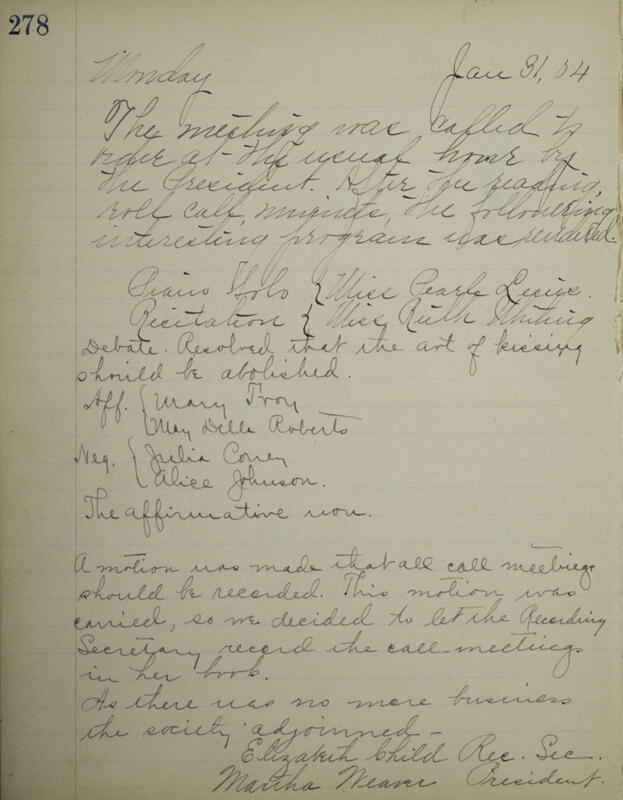 278
Monday Jan 31, 04
The meeting was called to
order at the usual hour by
the President. After the reading,
roll call, minutes, the following
interesting program was rendered.
Piano Solo { Miss Pearle
Recitation { Miss Ruth Whiting
Debate. Resolved that the art of kissing
should be abolished.
Aff. { Mary Troy
May Delle Roberts
Neg. { Julia
Alice Johnson.
The affirmative won.
A motion was made that all call meetings
should be recorded. This motion was
carried, so we decided to let the Recording
Secretary record the call meetings
in her book.
As there was no more business
the society adjoinned –
Elizabeth Child Rec. Sec.
Martha Weaver President.